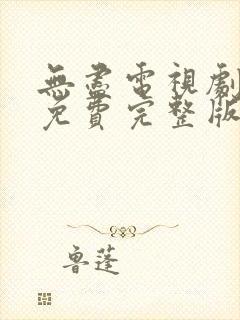 無盡電視劇
免費完整版
魯蓬